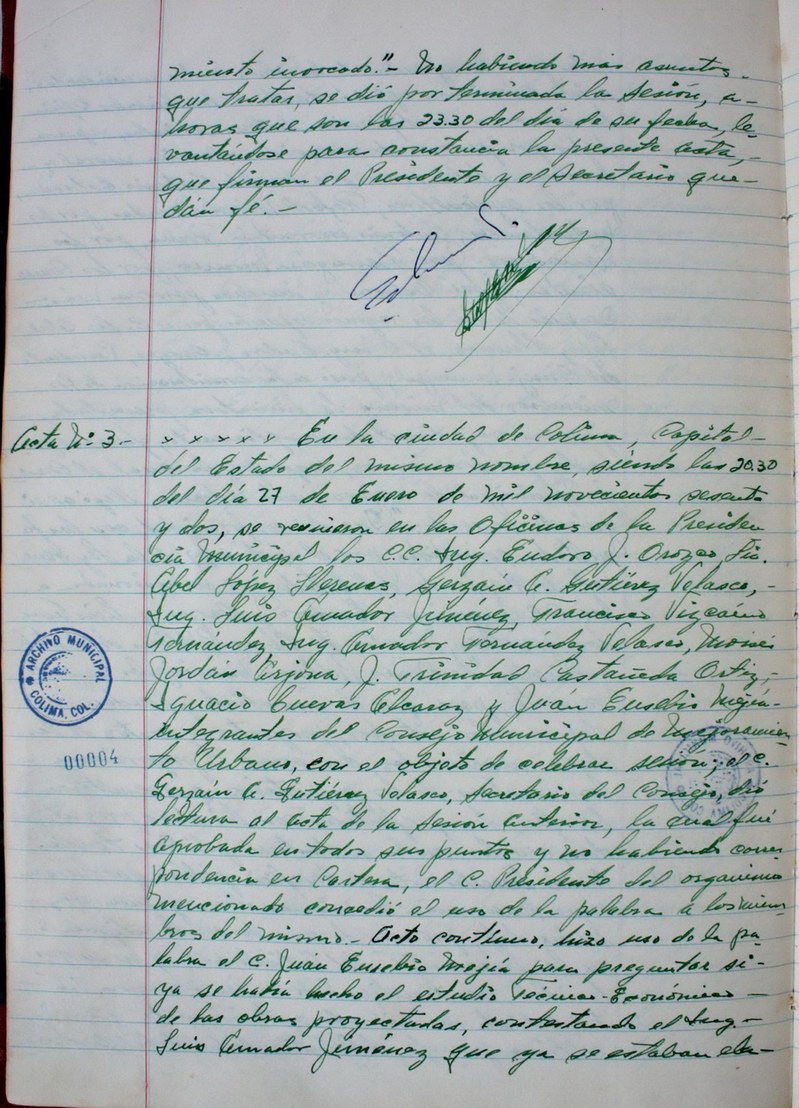 miento invocado."- No habiendo más asuntos-
que tratar, se dió por terminada la Sesión, a-
horas que son las 23.30 del día de su fecha, le-
vantándose para constancia la presente acta,-
que firman el Presidente y el Secretario que-
dán fé.-
Acta Nº 3.-
x x x x x En la ciudad de Colima, Capital-
del Estado del mismo nombre, siendo las 20.30
del día 27 de Enero de mil novecientos sesenta
y dos, se reunieron en las Oficinas de la Presiden
cia Municipal los C.C. Ing. Eudoro J. Orozco, Lic.
Abel López Llerenas, Gerzaín A. Gutiérrez Velasco,-
Ing. Luis Amador Jiménez, Francisco Vizcaíno
Fernández, Ing. Amador Fernández Velasco, Moisés
Jordán Arjona, J. Trinidad Castañeda Ortiz,-
Ignacio Cuevas Alcaraz y Juán Eusebio Mejía-
integrantes del Consejo Municipal de Mejoramien
to Urbano, con el objeto de celebrar sesión; el C.
Gerzaín A. Gutiérrez Velasco, Secretario del Consejo, dió
lectura al acta de la Sesión anterior, la cual fué
aprobada en todos sus puntos y no habiendo corres
pondencia en Cartera, el C. Presidente del organismo
mencionado concedió el uso de la palabra a los miem
bros del mismo.- Acto contínuo, hizo uso de la pa-
labra el C. Juán Eusebio Mejía para preguntar si-
ya se había hecho el estudio Técnico-Económico-
de las obras proyectadas, contestando el Ing.-
Luis Amador Jiménez que ya se estaban ela-
ARCHIVO MUNICIPAL
COLIMA, COL.
00004